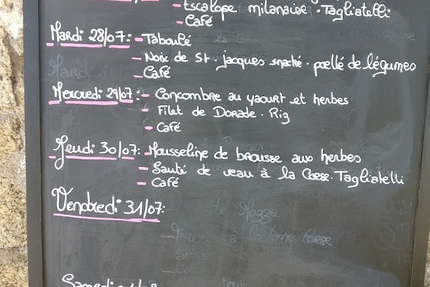 - Escalope milanaise . Tagliatelli
- Café
Mardi 28/07: - Taboulé
- Noix de St. jacques snaké . poellé de légumes
- Café
Mercredi 29/07: - Concombre au yaourt et herbes
- Filet de Dorade . Riz
- Café
Jeudi 30/07: - Mousseline de brousse aux herbes
- Sauté de veau à la Corse . Tagliatelli
- Café
Vendredi 31/07:
Samedi